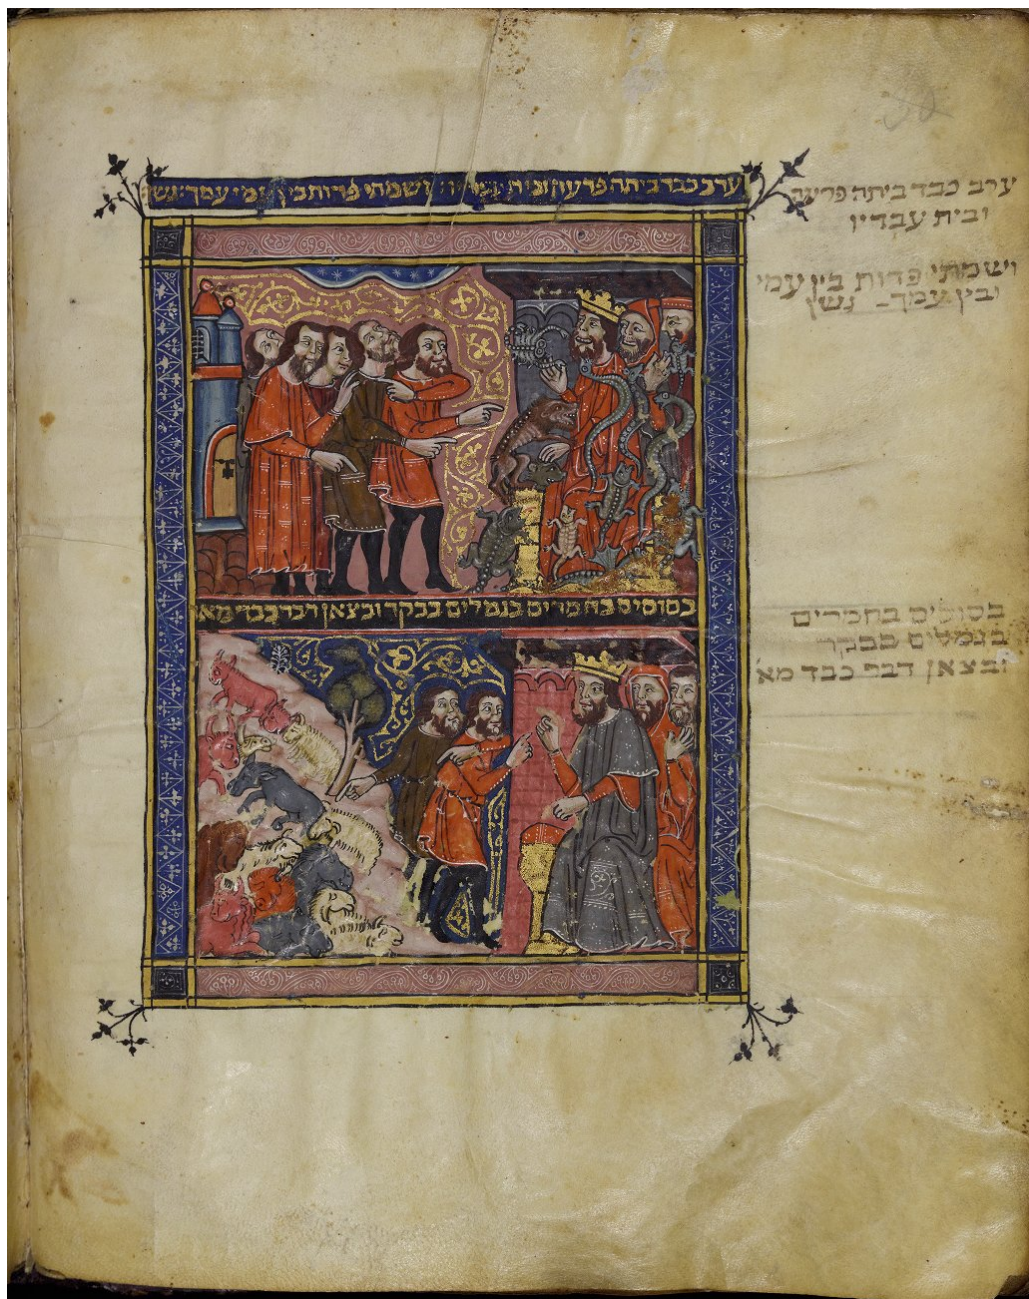 ערב כבד ביתה פרעה ובית עבדיו: ושמתי פדות בין עמי ובין עמך: נשן
ערב כבד ביתה פרעה
ובית עבדיו
ושמתי פדות בין עמי
ובין עמך נשן
בסוסים בחמרים בגמלים בבקר ובצאן דבר כבד מא
בסוסים בחמרים
בגמלים בבקר
ובצאן דבר כבד מא